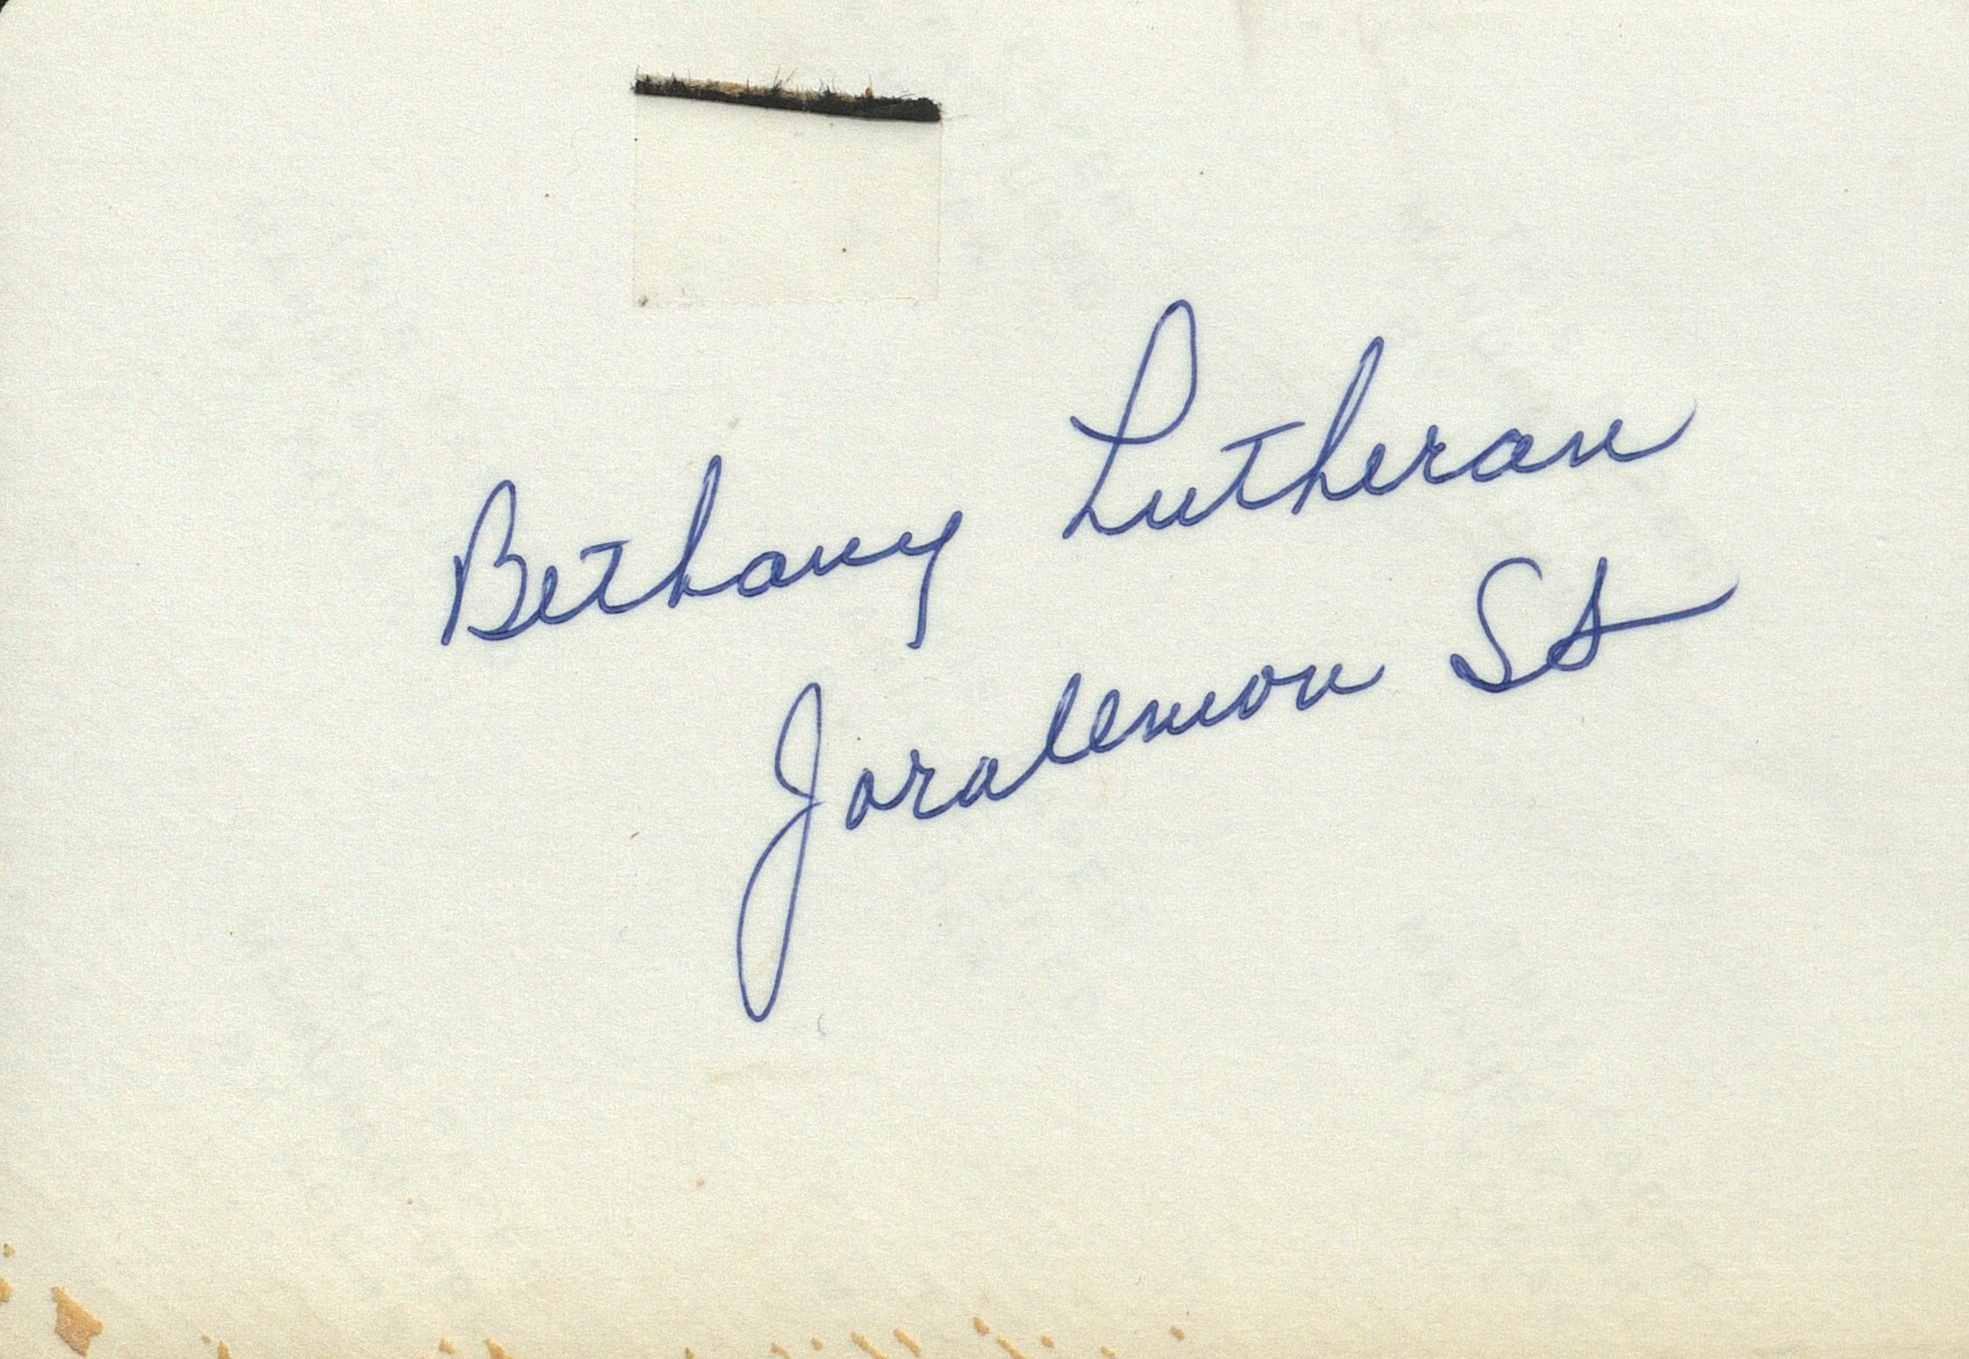 Bethany Lutheran
Joralemon St